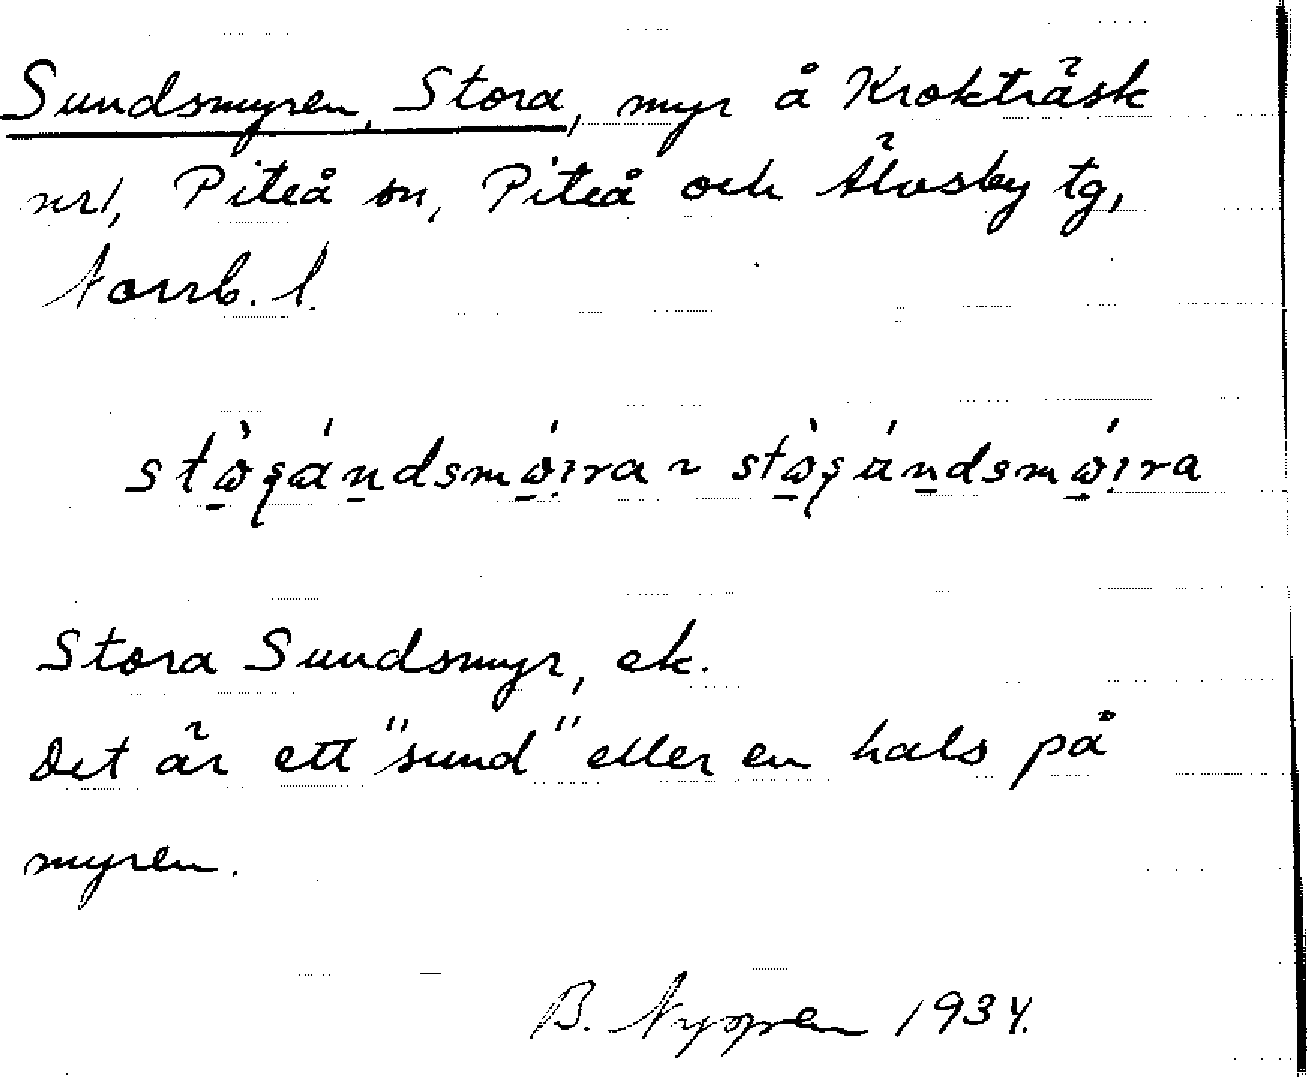 Sundsmyren, Stora, myr å Krokträsk
nr1, Piteå sn, Piteå och Älvsby tg,
Norrb. l.
Stora Sundsmyr, ek.
Det är ett "sund" eller en hals på
myren.
B. 1934.